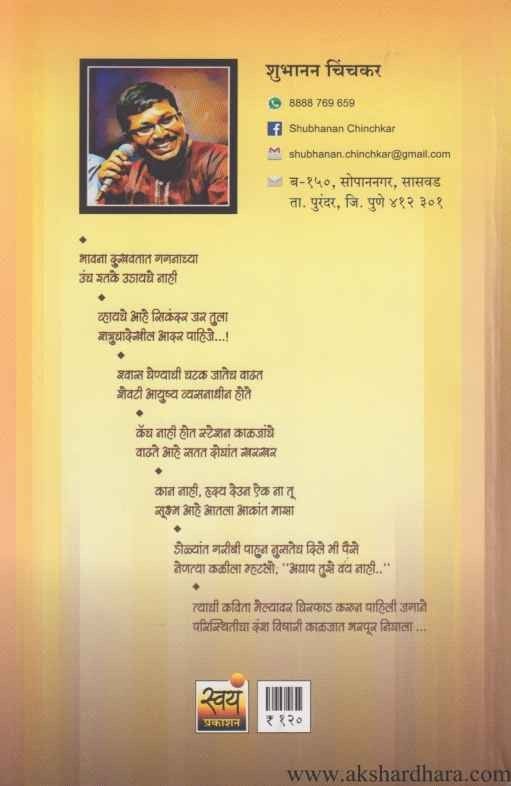 शुभानन चिंचकर
8888 769 659
Shubhanan Chinchkar
shubhanan.chinchkar@gmail.com
ब-१५०, सोपाननगर, सासवड
ता. पुरंदर, जि. पुणे ४१२ ३०१
भावना दुखवतात गगनाच्या
उंच इतके उडायचे नाही
व्हायचे आहे सिकंदर जर तुला
शत्रुचादेखील आदर पाहिजे...!
श्वास घेण्याची चटक जातेच वाढत
शेवटी आयुष्य व्यसनाधीन होते
कॅच नाही होत स्टेशन काळजांचे
वाढते आहे सतत दोघांत खरखर
कान नाही, हृदय देउन ऐक ना तू
सूक्ष्म आहे आतला आकांत माझा
डोळ्यांत गरीबी पाहून नुसतेच दिले मी पैसे
नेणत्या कळीला म्हटलो, "अद्याप तुझे वय नाही.."
त्याची कविता मेल्यावर चिरफाड करून पाहिली जगाने
परिस्थितीचा दंश विषारी काळजात भरपूर निघाला ...
स्वयं
प्रकाशन
₹ १२०
www.akshardhara.com